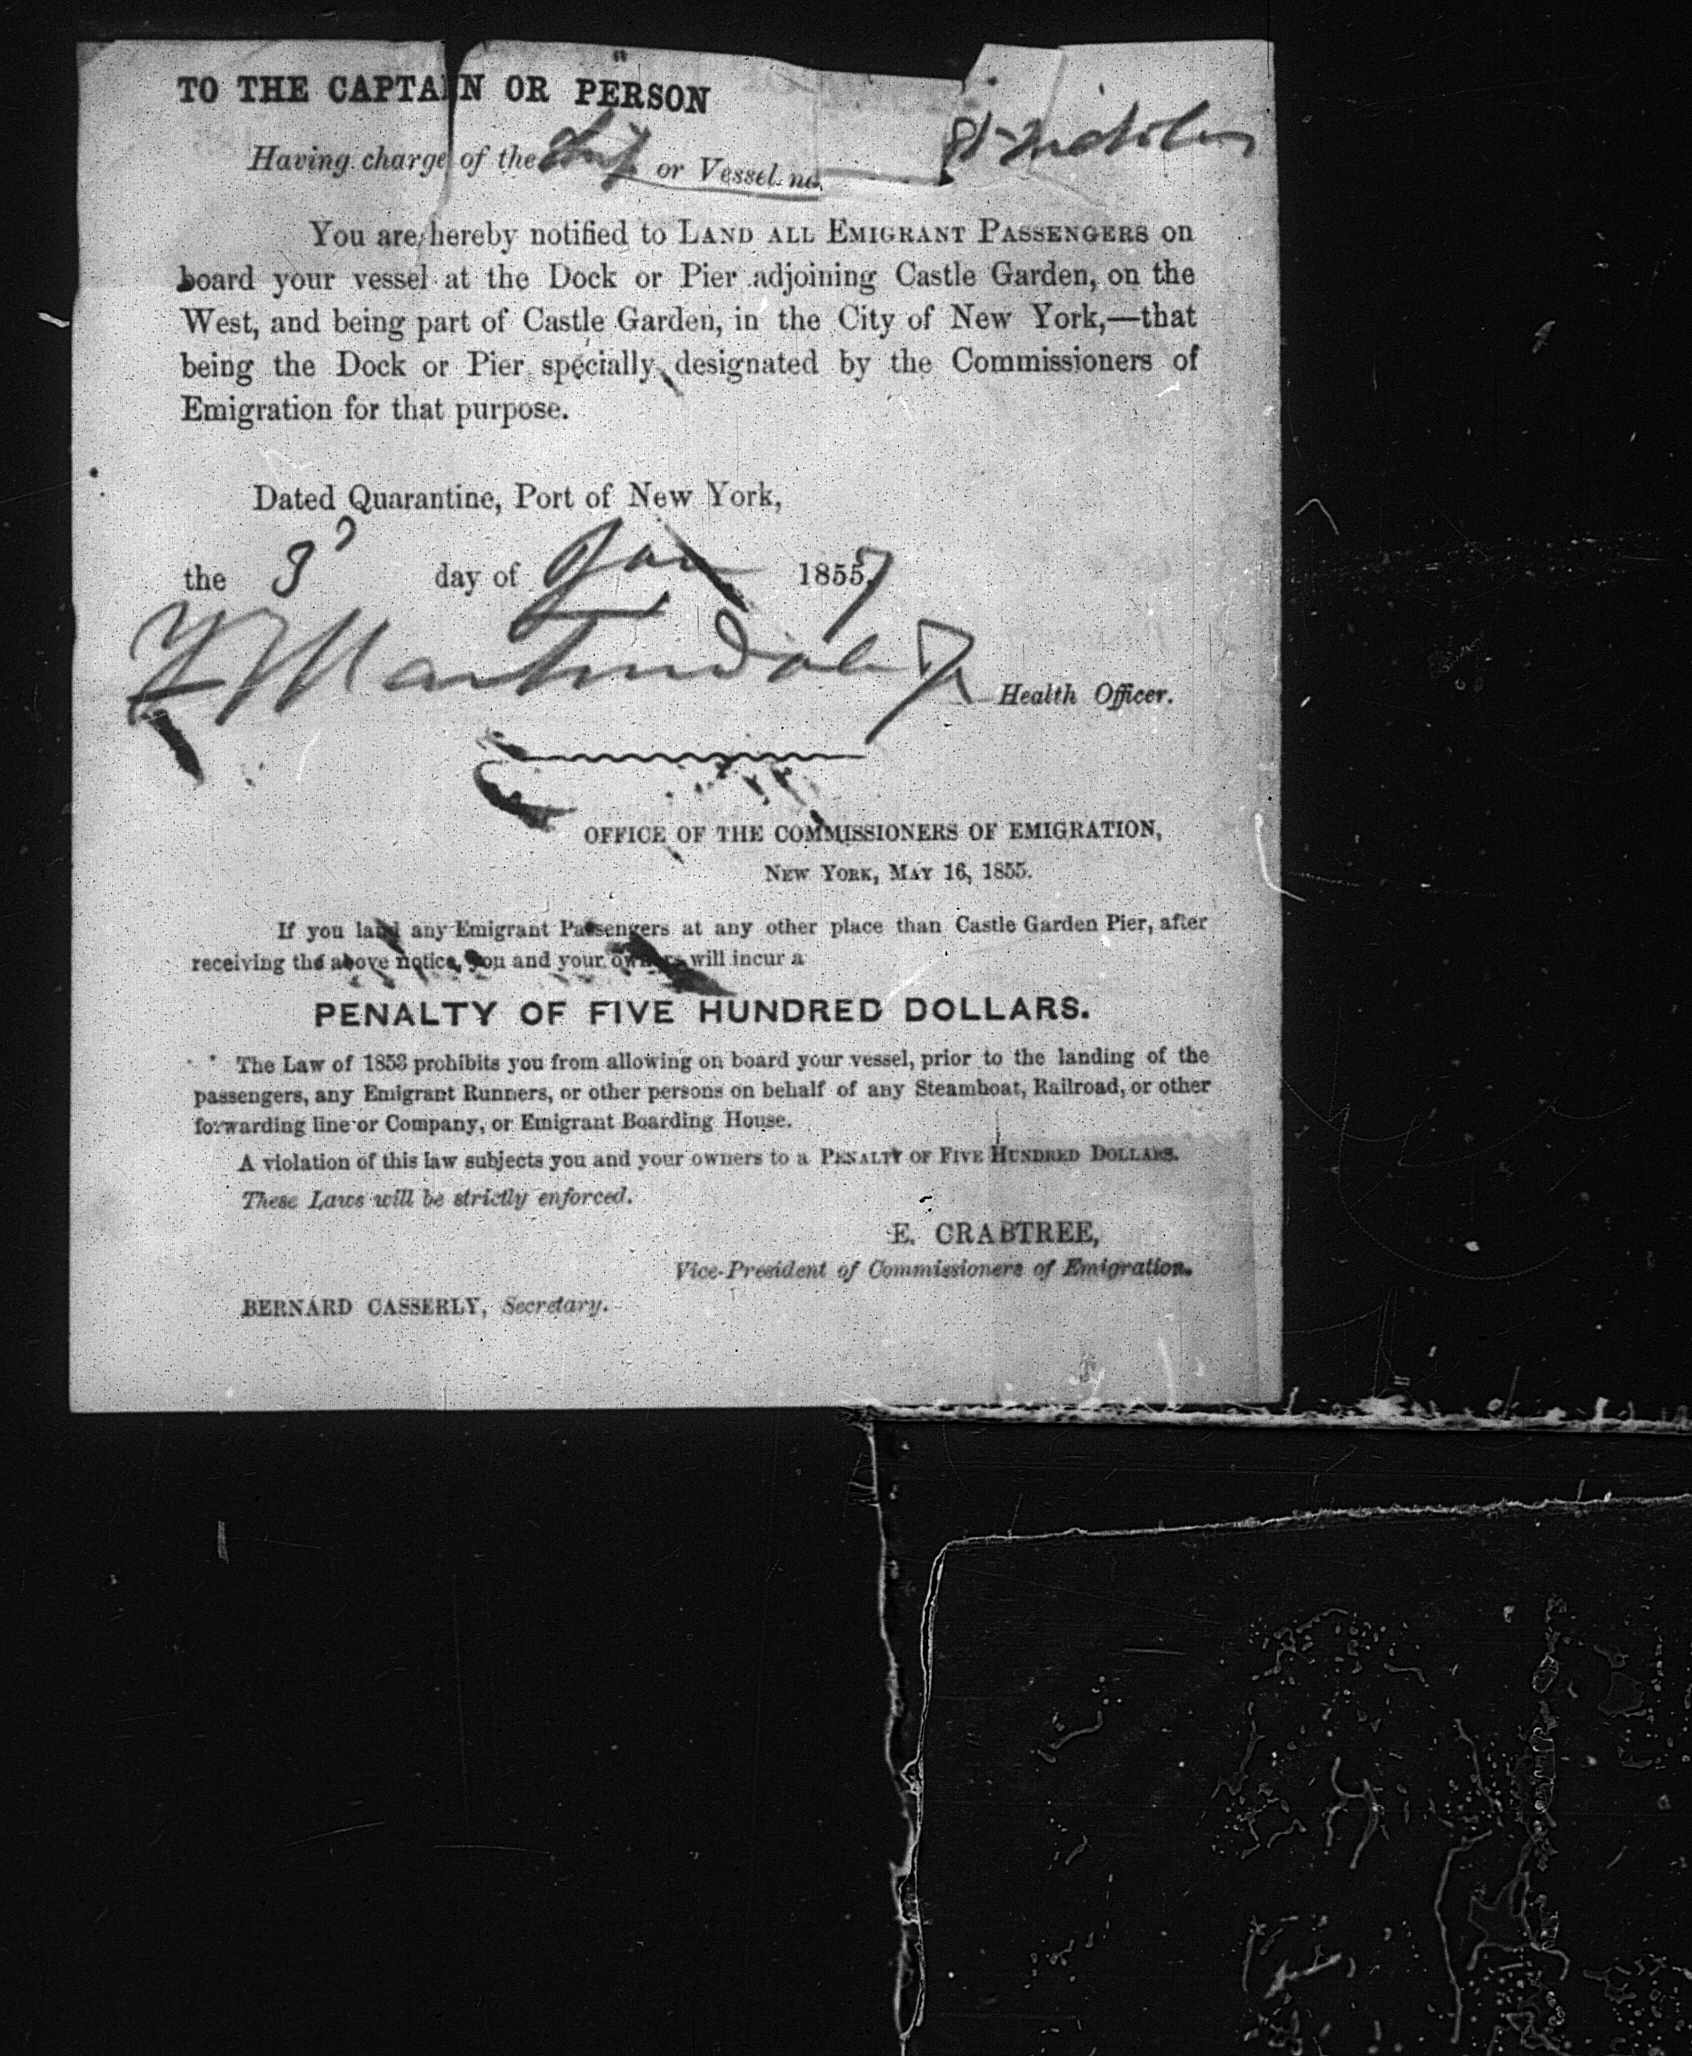 TO THE CAPTAIN OR PERSON
Having charge of the Ship or Vessel St Nicholas
You are hereby notified to LAND ALL EMIGRANT PASSENGERS on
board your vessel at the Dock or Pier adjoining Castle Garden, on the
West, and being part of Castle Garden, in the City of New York,—that
being the Dock or Pier specially designated by the Commissioners of
Emigration for that purpose.
Dated Quarantine, Port of New York,
the 3 day of Jan 1857
Health Officer.
OFFICE OF THE COMMISSIONERS OF EMIGRATION,
NEW YORK, MAY 16, 1855.
If you land any Emigrant Passengers at any other place than Castle Garden Pier, after
receiving the above notice, you and your owners will incur a
PENALTY OF FIVE HUNDRED DOLLARS.
The Law of 1853 prohibits you from allowing on board your vessel, prior to the landing of the
passengers, any Emigrant Runners, or other persons on behalf of any Steamboat, Railroad, or other
forwarding line or Company, or Emigrant Boarding House.
A violation of this law subjects you and your owners to a PENALTY OF FIVE HUNDRED DOLLARS.
These Laws will be strictly enforced.
E. CRABTREE,
Vice-President of Commissioners of Emigration.
BERNARD CASSERLY, Secretary.